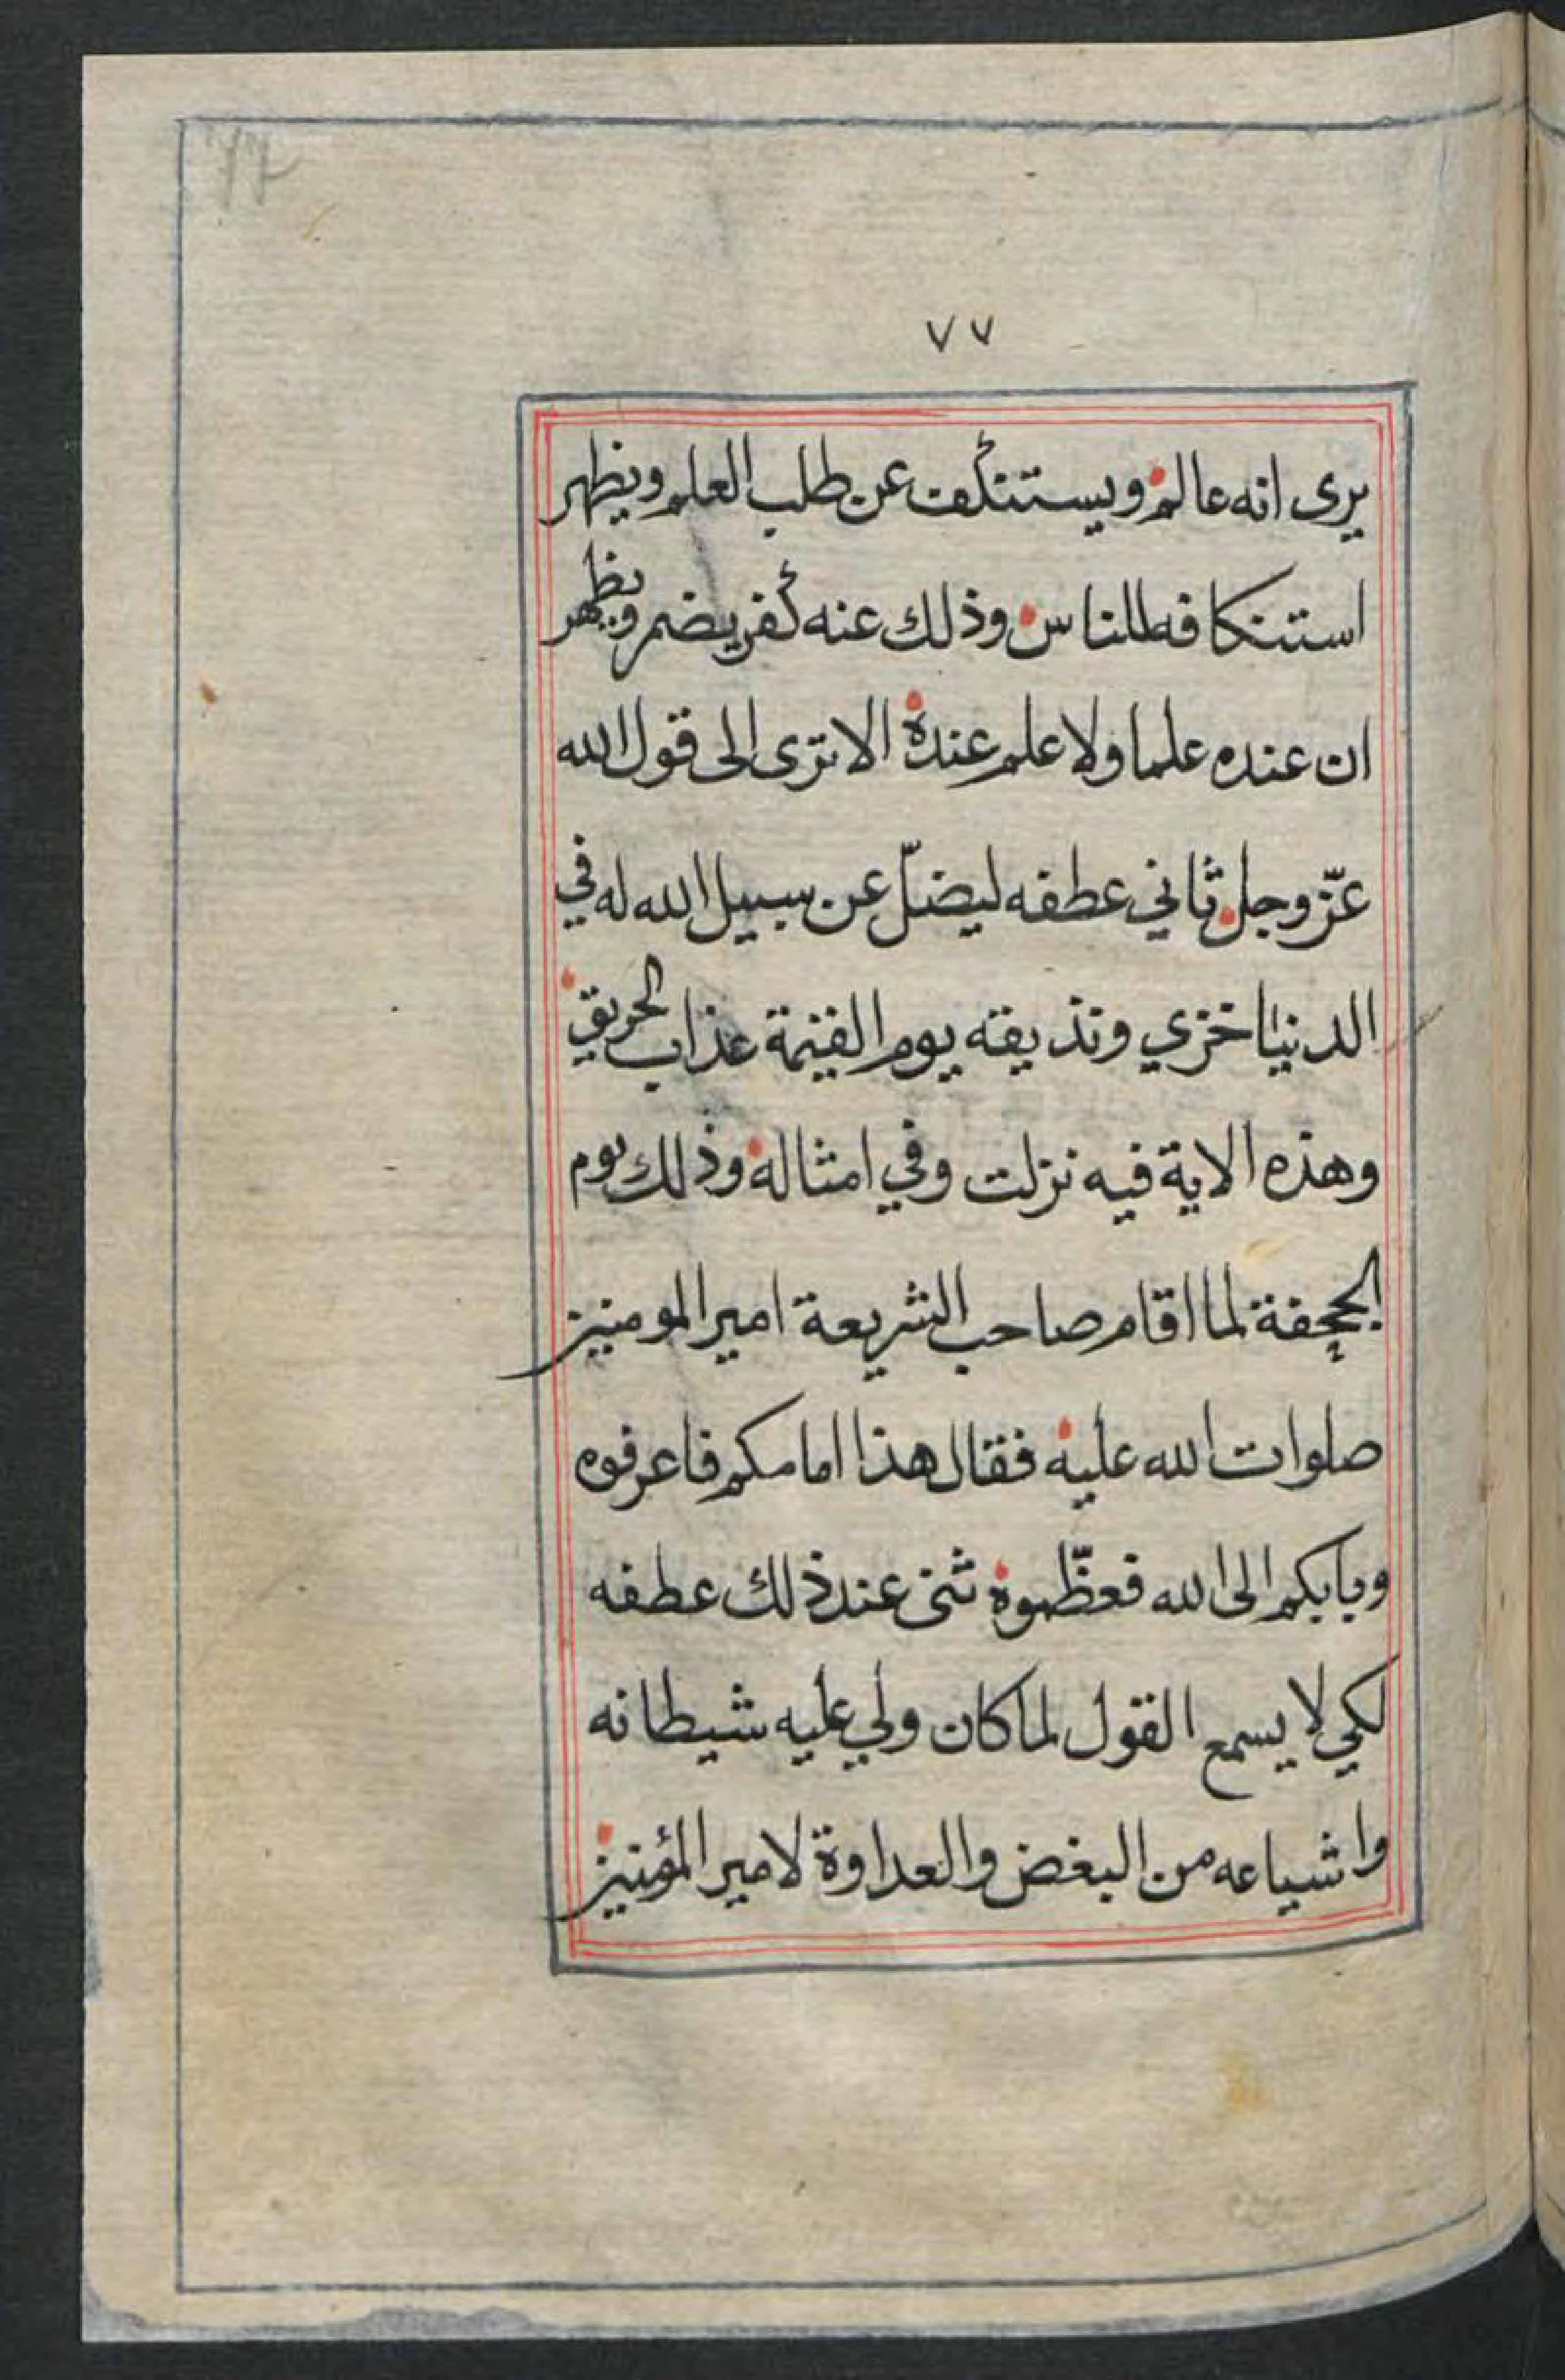 ٧٧
يرى انه عالم ويستنكف عن طلب العلم ويظهر
استنكافه للناس وذلك عنه كفر يضمر ويظهر
ان عنده علما ولا علم عنده الا ترى الى قول الله
عزّ وجل ثاني عطفه ليضلّ عن سبيل الله له في
الدنيا خزي ونذيقه يوم القيمة عذاب الحريق
وهذه الاية فيه نزلت وفي امثاله وذلك يوم
الجحفة لما اقام صاحب الشريعة امير المومنين
صلوات الله عليه فقال هذا امامكم فاعرفوه
وبابكم الى الله فعظّموه ثنى عند ذلك عطفه
لكي لا يسمع القول لما كان ولي عليه شيطانه
واشياعه من البغض والعداوة لامير المؤمنين